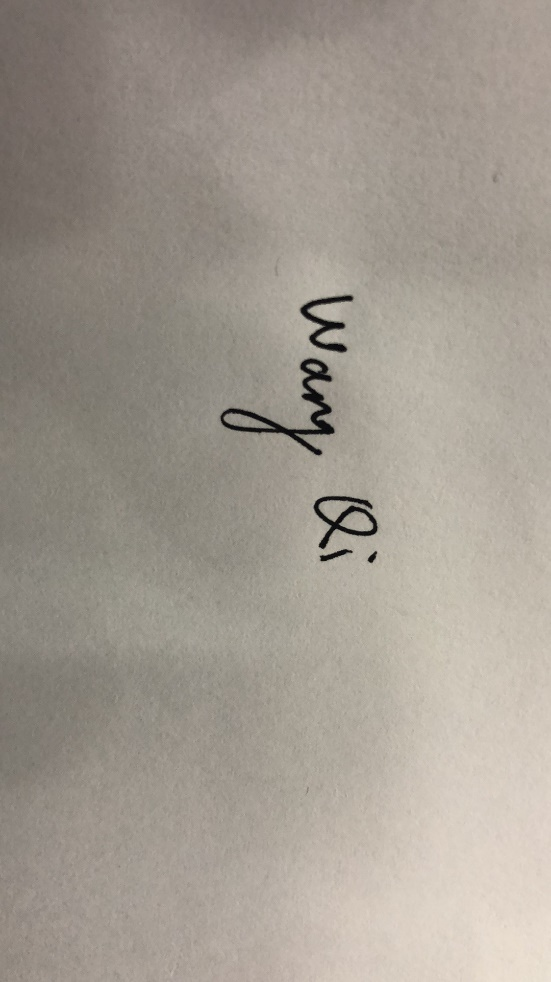 Wang Qi